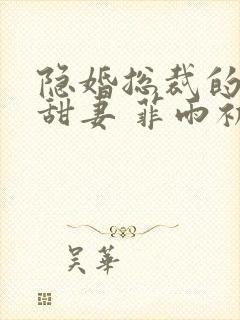 隐婚总裁的
甜妻 菲雨初
吴华